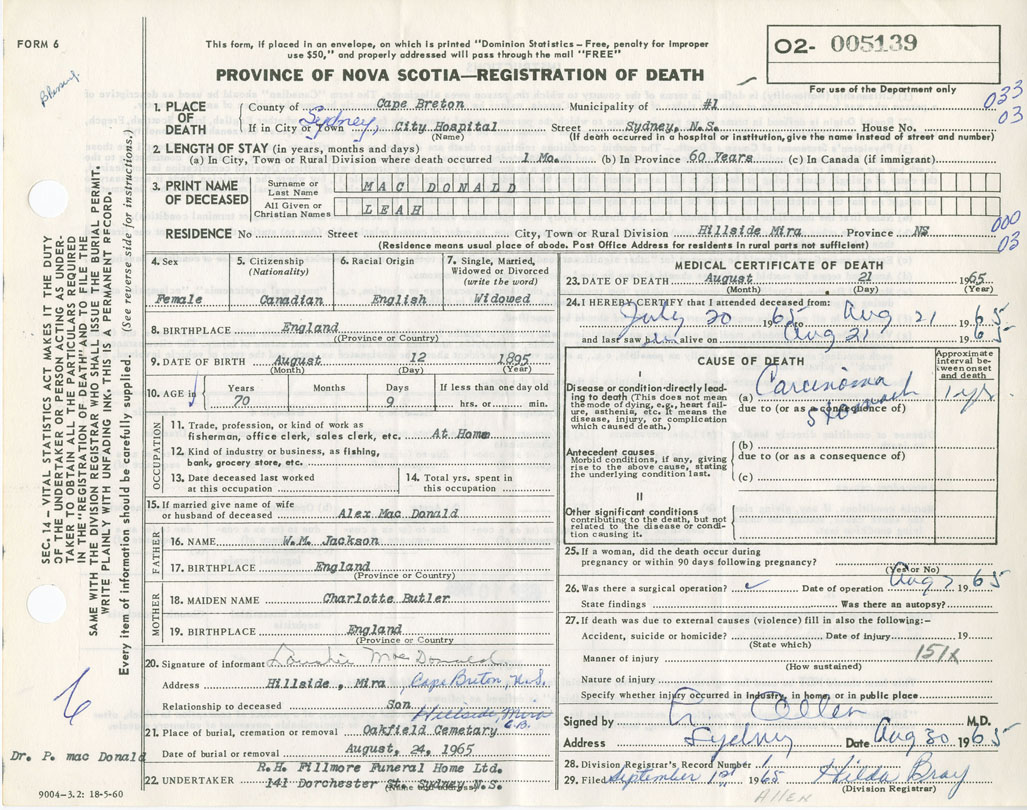 FORM 6
This form, if placed in an envelope, on which is printed "Dominion Statistics – Free, penalty for improper
use $50," and properly addressed will pass through the mail "FREE"
PROVINCE OF NOVA SCOTIA—REGISTRATION OF DEATH
02- 005139
For use of the Department only
033
03
1. PLACE OF DEATH
County of Cape Breton Municipality of #1
(Name)
If in City or Town Sydney, City Hospital Street Sydney, N.S. House No.
(If death occurred in a hospital or institution, give the name instead of street and number)
2. LENGTH OF STAY (in years, months and days)
(a) In City, Town or Rural Division where death occurred 1 Mo. (b) In Province 60 Years (c) In Canada (if immigrant)
3. PRINT NAME OF DECEASED
Surname or Last Name MAC DONALD
All Given or Christian Names LEAH
000
03
RESIDENCE No Street City, Town or Rural Division Hillside Mira Province NS
(Residence means usual place of abode. Post Office Address for residents in rural parts not sufficient)
4. Sex
Female
5. Citizenship
(Nationality)
Canadian
6. Racial Origin
English
7. Single, Married,
Widowed or Divorced
(write the word)
Widowed
8. BIRTHPLACE England
(Province or Country)
9. DATE OF BIRTH August 12 1895
(Month) (Day) (Year)
10. AGE in
Years Months Days If less than one day old
70 9 hrs. or min.
OCCUPATION
11. Trade, profession, or kind of work as
fisherman, office clerk, sales clerk, etc. At Home
12. Kind of industry or business, as fishing,
bank, grocery store, etc.
13. Date deceased last worked
at this occupation
14. Total yrs. spent in
this occupation
15. If married give name of wife
or husband of deceased Alex Mac Donald
FATHER
16. NAME W.M. Jackson
17. BIRTHPLACE England
(Province or Country)
MOTHER
18. MAIDEN NAME Charlotte Butler
19. BIRTHPLACE England
(Province or Country)
20. Signature of informant Mac Donald
Address Hillside, Mira, Cape Breton, N.S.
Relationship to deceased Son
Hillside, Mira
C.B.
21. Place of burial, cremation or removal Oakfield Cemetary
Date of burial or removal August, 24, 1965
22. UNDERTAKER R.H. Fillmore Funeral Home Ltd.
141 Dorchester St. Sydney N.S.
(Name and address)
9004–3.2: 18-5-60
Dr. P. mac Donald
SEC. 14 – VITAL STATISTICS ACT MAKES IT THE DUTY
OF THE UNDERTAKER OR PERSON ACTING AS UNDER-
TAKER TO OBTAIN ALL THE PARTICULARS REQUIRED
IN THE "REGISTRATION OF DEATH" AND TO FILE THE
SAME WITH THE DIVISION REGISTRAR WHO SHALL ISSUE THE BURIAL PERMIT.
WRITE PLAINLY WITH UNFADING INK. THIS IS A PERMANENT RECORD.
Every item of information should be carefully supplied. (See reverse side for instructions.)
MEDICAL CERTIFICATE OF DEATH
23. DATE OF DEATH August 21 1965
(Month) (Day) (Year)
24. I HEREBY CERTIFY that I attended deceased from:
July 20 1965 to Aug 21 1965
and last saw him alive on Aug 21 1965
CAUSE OF DEATH
Approximate
interval be-
tween onset
and death
I
Disease or condition directly lead-
ing to death (This does not mean
the mode of dying, e.g., heart fail-
ure, asthenia, etc. It means the
disease, injury, or complication
which caused death.)
(a) Carcinoma 1 yr
due to (or as a consequence of)
stomach
Antecedent causes
Morbid conditions, if any, giving
rise to the above cause, stating
the underlying condition last.
(b)
due to (or as a consequence of)
(c)
II
Other significant conditions
contributing to the death, but not
related to the disease or condi-
tion causing it.
25. If a woman, did the death occur during
pregnancy or within 90 days following pregnancy?
(Yes or No)
26. Was there a surgical operation? ✓ Date of operation Aug 7 1965
State findings Was there an autopsy?
27. If death was due to external causes (violence) fill in also the following:–
Accident, suicide or homicide? Date of injury 19
(State which)
Manner of injury 151X
(How sustained)
Nature of injury
Specify whether injury occurred in industry, in home, or in public place
Signed by M.D.
Address Sydney Date Aug 30 1965
28. Division Registrar's Record Number
29. Filed September 1st 1965 Hilda Bray
(Division Registrar)
ALLEN